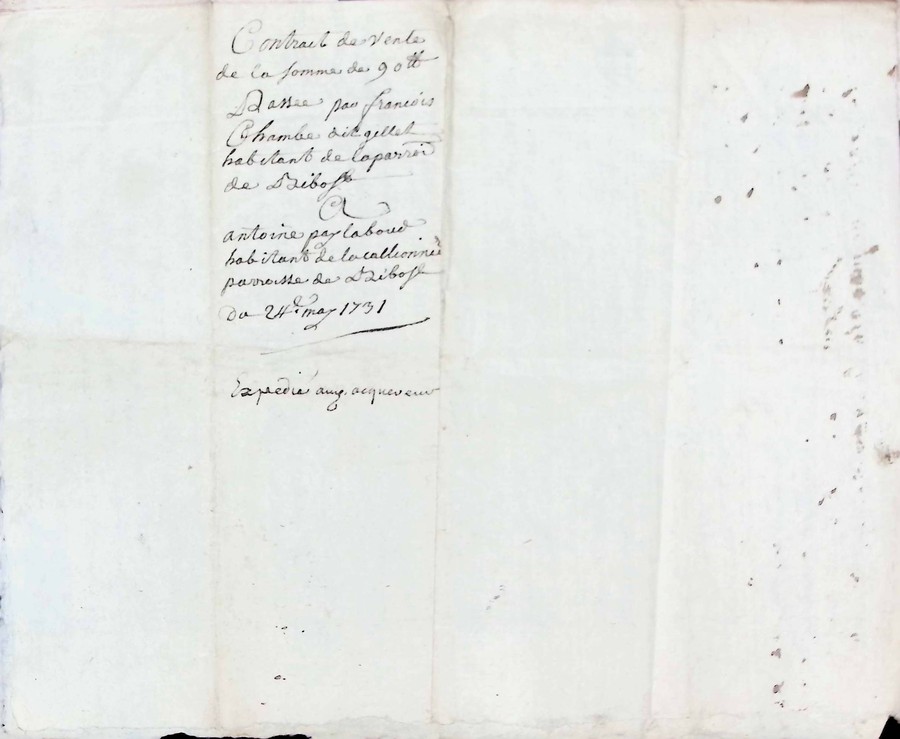 Contract de vente
de la somme de 90 tt
Passee par francois
Chambe dit gillet
habitant de la parroi
de Ribost
A
antoine pay laboud
habitant de la
parroisse de Ribost
du 24e may 1731
Expedié aud. acquereur